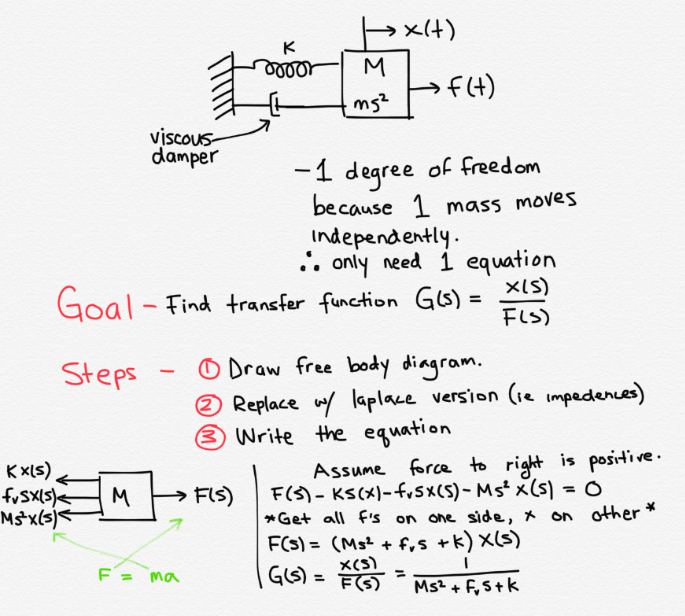 x(t)
K
M
f(t)
ms²
viscous
damper
- 1 degree of freedom
because 1 mass moves
independently.
∴ only need 1 equation
Goal - Find transfer function G(s) = X(s)/F(s)
Steps - ① Draw free body diagram.
② Replace w/ laplace version (ie impedences)
③ Write the equation
KX(s)
fᵥSX(s)
Ms²X(s)
M
F(s)
F = ma
Assume force to right is positive.
F(s) - KS(x) - fᵥSX(s) - Ms²X(s) = 0
*Get all f's on one side, x on other*
F(s) = (Ms² + fᵥs + k) X(s)
G(s) = X(s)/F(s) = 1/(Ms² + fᵥS + k)